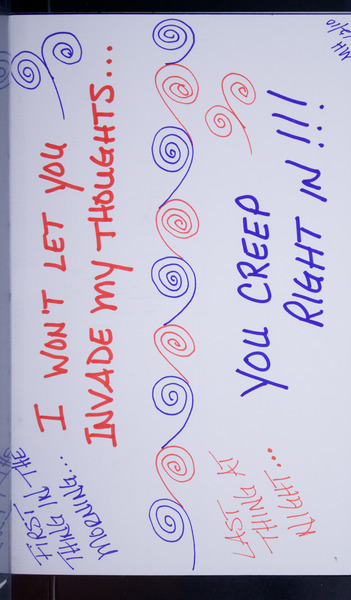 FIRST
THING IN THE
MORNING...
I WON'T LET YOU
INVADE MY THOUGHTS...
LAST AT
THING
NIGHT...
YOU CREEP
RIGHT IN!!!
MH
12/10